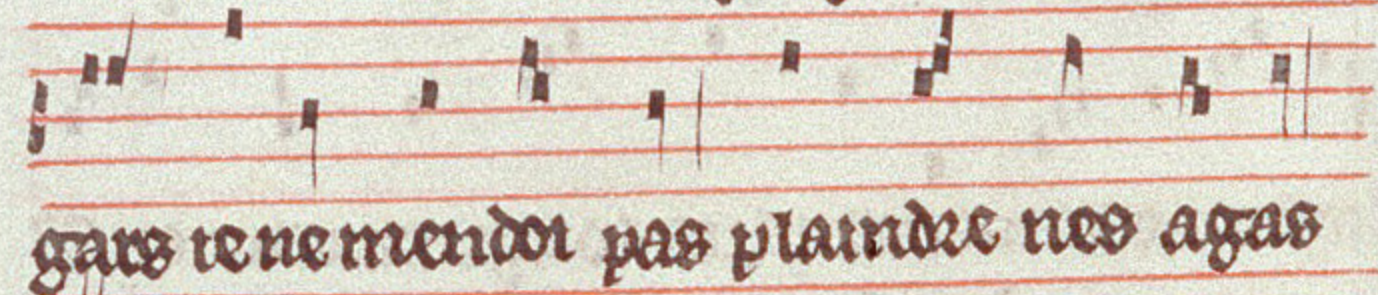 gars ie ne men doi pas plaindre nes agas